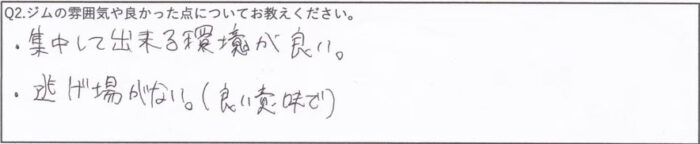 Q2.ジムの雰囲気や良かった点についてお教えください。
・集中して出来る環境が良い。
・逃げ場がない。(良い意味で)